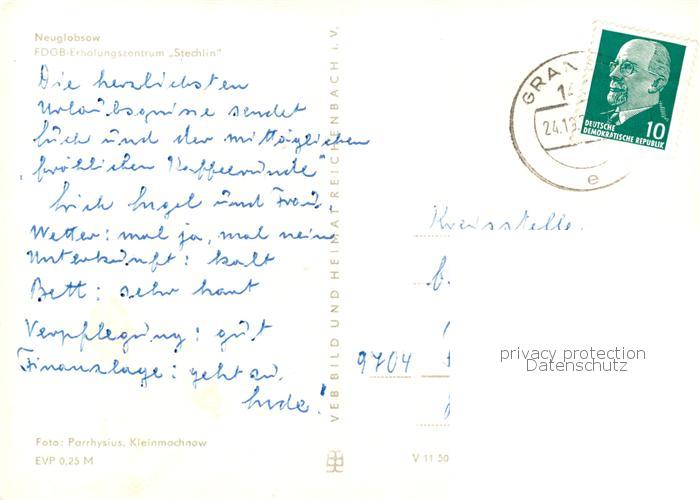 Neuglobsow
FDGB-Erholungszentrum „Stechlin“
Die herzlichsten
Urlaubsgrüsse sendet
Euch und der mittäglichen
„fröhlichen Kafferunde“
Erich Engel und Frau.
Wetter: mal ja, mal nein
Unterkunft: kalt
Bett: sehr hart
Verpflegung: gut
Finanzlage: geht zu
Ende!
Foto: Parrhysius, Kleinmachnow
EVP 0,25 M
VEB BILD UND HEIMAT REICHENBACH i. V.
V 11 50
GRAN
14
24.1
e
DEUTSCHE
DEMOKRATISCHE REPUBLIK
10
Kreisstelle
9704
privacy protection
Datenschutz